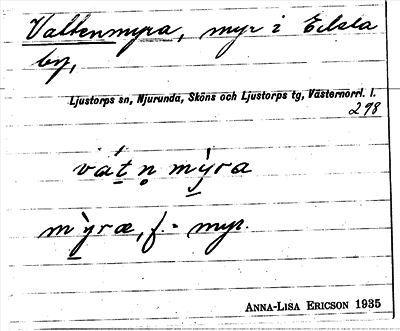 Vattenmyra, myr i Edsta
by,
Ljustorps sn, Njurunda, Sköns och Ljustorps tg, Västernorrl. l.
298
vát̲n̥ mỳ̲ra
mỳ̲ræ, f. = myr.
ANNA-LISA ERICSON 1935